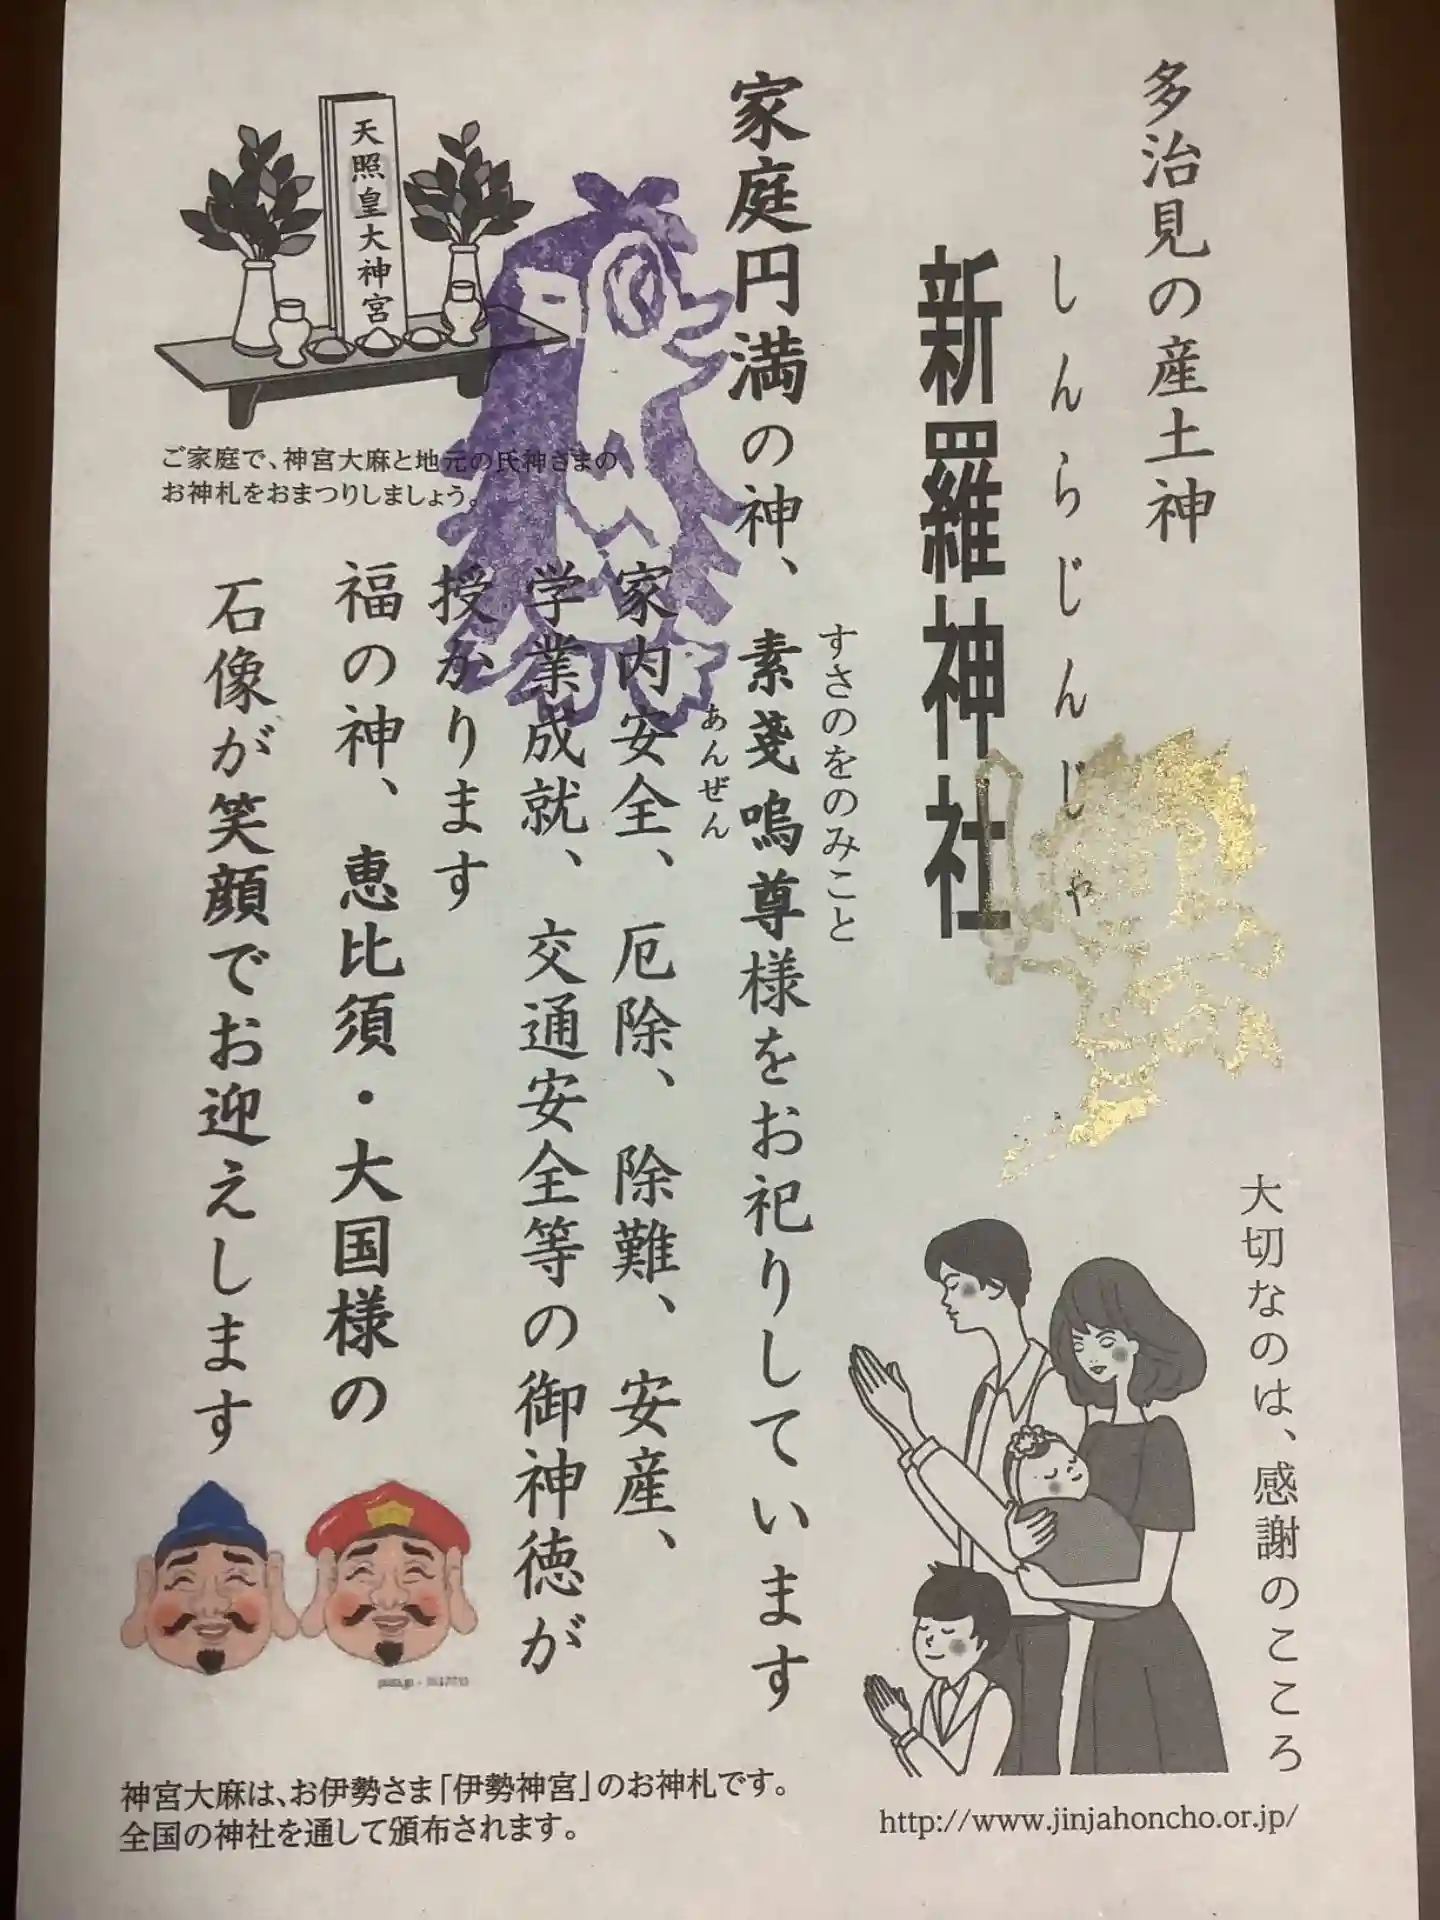 多治見の産土神
しんらじんじゃ
新羅神社
すさのをのみこと
家庭円満の神、素戔嗚尊様をお祀りしています
あんぜん
家内安全、厄除、除難、安産、
学業成就、交通安全等の御神徳が
授かります
福の神、恵比須・大国様の
石像が笑顔でお迎えします
天照皇大神宮
ご家庭で、神宮大麻と地元の氏神さまの
お神札をおまつりしましょう。
大切なのは、感謝のこころ
神宮大麻は、お伊勢さま「伊勢神宮」のお神札です。
全国の神社を通して頒布されます。
http://www.jinjahoncho.or.jp/